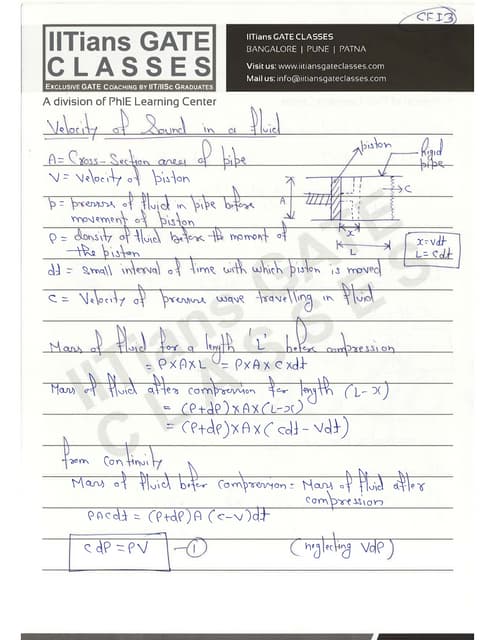 CFI3
IITians GATE
CLASSES
EXCLUSIVE GATE COACHING BY IIT/IISC GRADUATES
A division of PhIE Learning Center
IITians GATE CLASSES
BANGALORE | PUNE | PATNA
Visit us: www.iitiansgateclasses.com
Mail us: info@iitiansgateclasses.com
Velocity of Sound in a fluid
A = Cross-Section area of pipe
V = Velocity of piston
p = pressure of fluid in pipe before
movement of piston
ρ = density of fluid before the moment of
the piston
dt = small interval of time with which piston is moved
C = Velocity of pressure wave travelling in fluid
piston
Rigid
pipe
A
C
x
L
x = vdt
L = cdt
Mass of fluid for a length 'L' before compression
= ρ×A×L = ρ×A×C×dt
Mass of fluid after compression for length (L-x)
= (ρ+dρ)×A×(L-x)
= (ρ+dρ)×A×(cdt-vdt)
from continuity
Mass of fluid before compression = Mass of fluid after
compression
ρACdt = (ρ+dρ)A(C-V)dt
Cdρ = ρV — ①
(neglecting Vdρ)
IITians GATE
CLASSES